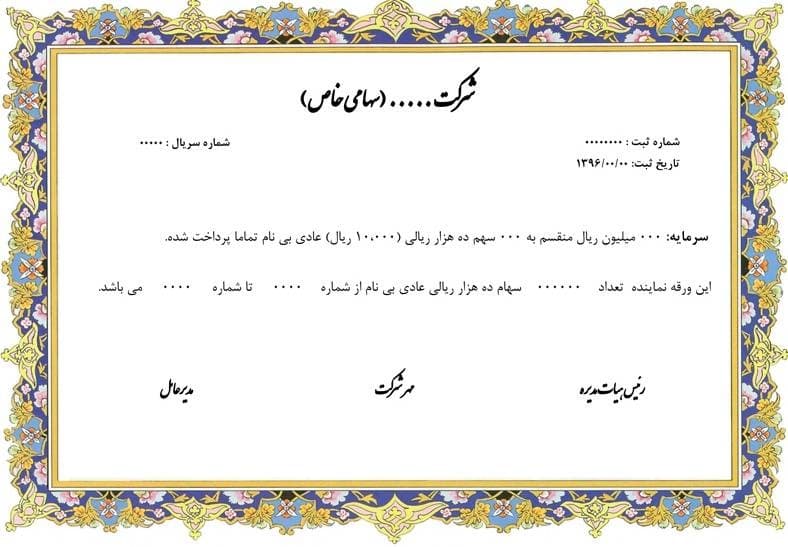 شرکت ..... (سهامی خاص)
شماره ثبت : ۰۰۰۰۰۰۰۰
شماره سریال : ۰۰۰۰۰
تاریخ ثبت: ۱۳۹۶/۰۰/۰۰
سرمایه: ۰۰۰ میلیون ریال منقسم به ۰۰۰ سهم ده هزار ریالی (۱۰،۰۰۰ ریال) عادی بی نام تماما پرداخت شده.
این ورقه نماینده تعداد ۰۰۰۰۰۰ سهام ده هزار ریالی عادی بی نام از شماره ۰۰۰۰ تا شماره ۰۰۰۰ می باشد.
رئیس هیات مدیره
مهر شرکت
مدیر عامل